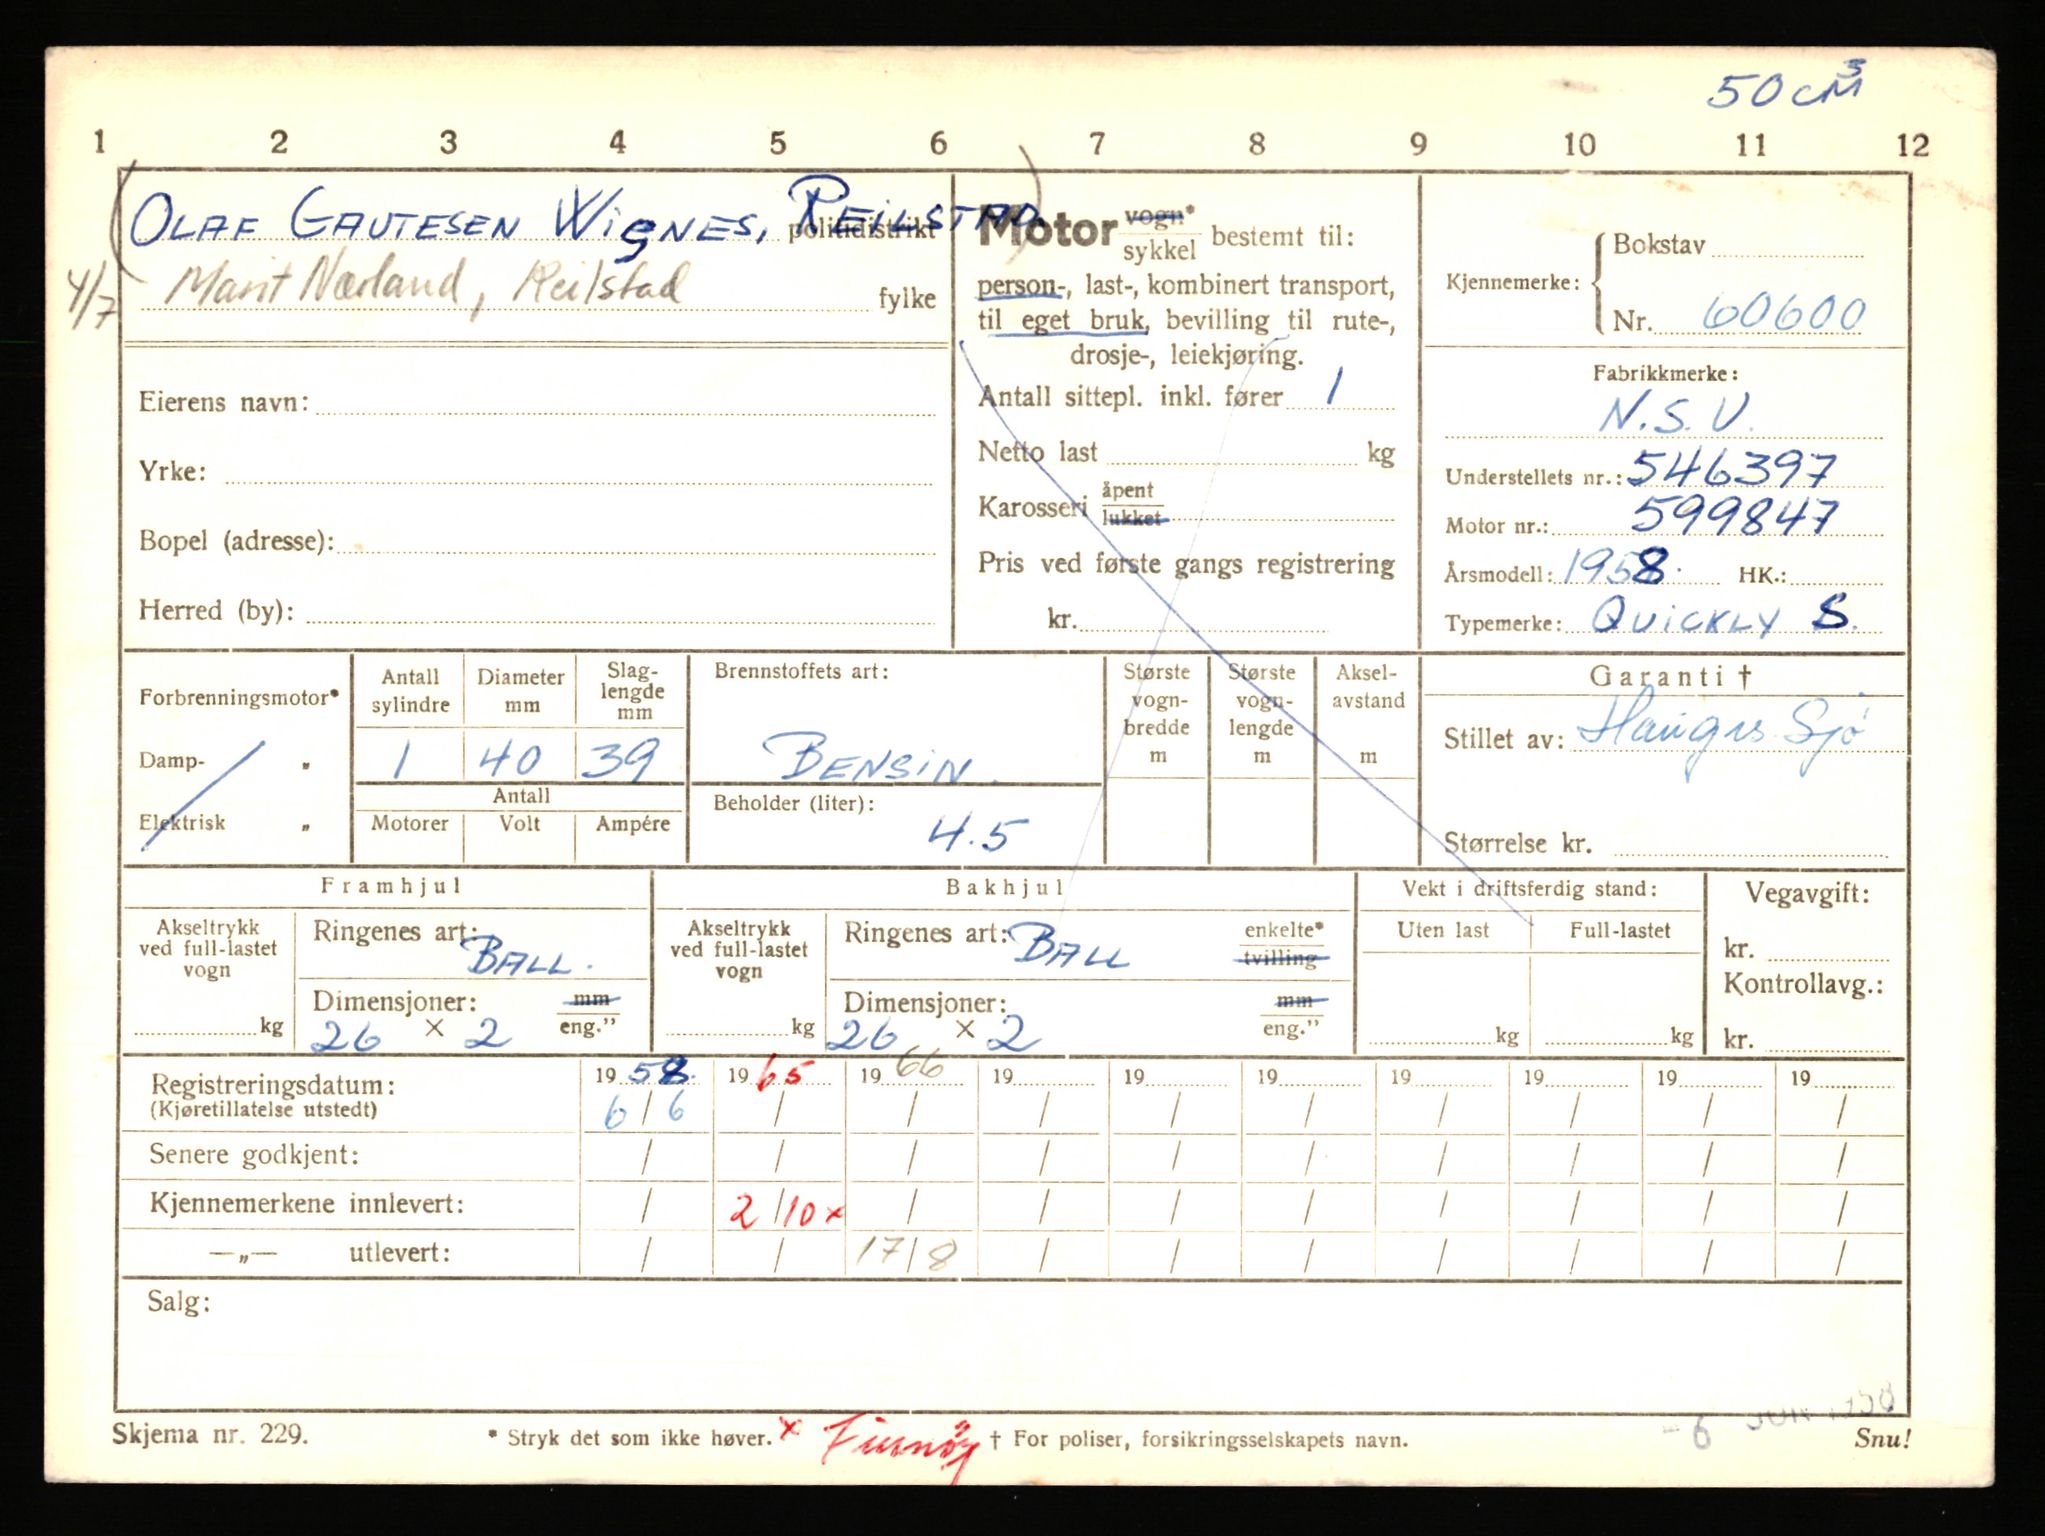 50 cm³
1 2 3 4 5 6 7 8 9 10 11 12
(OLAF GAUTESEN WIGNES, REILSTAD)
politidistrikt
4/7 Marit Nærland, Reilstad fylke
Eierens navn:
Yrke:
Bopel (adresse):
Herred (by):
Motor vogn* sykkel bestemt til:
person-, last-, kombinert transport,
til eget bruk, bevilling til rute-,
drosje-, leiekjøring.
Antall sittepl. inkl. fører 1
Netto last kg
Karosseri åpent lukket
Pris ved første gangs registrering
kr.
Kjennemerke: Bokstav
Nr. 60600
Fabrikkmerke:
N.S.U.
Understellets nr.: 546397
Motor nr.: 599847
Årsmodell: 1958. HK.:
Typemerke: QUICKLY S.
Forbrenningsmotor*
Damp- „
Elektrisk „
Antall sylindre
Diameter mm
Slag-lengde mm
1 40 39
Antall
Motorer Volt Ampére
Brennstoffets art:
BENSIN.
Beholder (liter):
4.5
Største vogn-bredde m
Største vogn-lengde m
Aksel-avstand m
Garanti †
Stillet av: Haugs Sjø
Størrelse kr.
Framhjul
Akseltrykk ved full-lastet vogn
kg
Ringenes art: BALL.
Dimensjoner: mm eng."
26 × 2
Bakhjul
Akseltrykk ved full-lastet vogn
kg
Ringenes art: BALL enkelte* tvilling
Dimensjoner: mm eng."
26 × 2
Vekt i driftsferdig stand:
Uten last Full-lastet
kg kg
Vegavgift:
kr.
Kontrollavg.:
kr.
Registreringsdatum: 1958. 1965 1966 19 19 19 19 19 19 19
(Kjøretillatelse utstedt) 6/6 / / / / / / / / /
Senere godkjent: / / / / / / / / / /
Kjennemerkene innlevert: / 2/10 x / / / / / / / /
—„— utlevert: / / 17/8 / / / / / / /
Salg:
- 6 JUN 1958
Skjema nr. 229. * Stryk det som ikke høver. x Finnøy † For poliser, forsikringsselskapets navn. Snu!